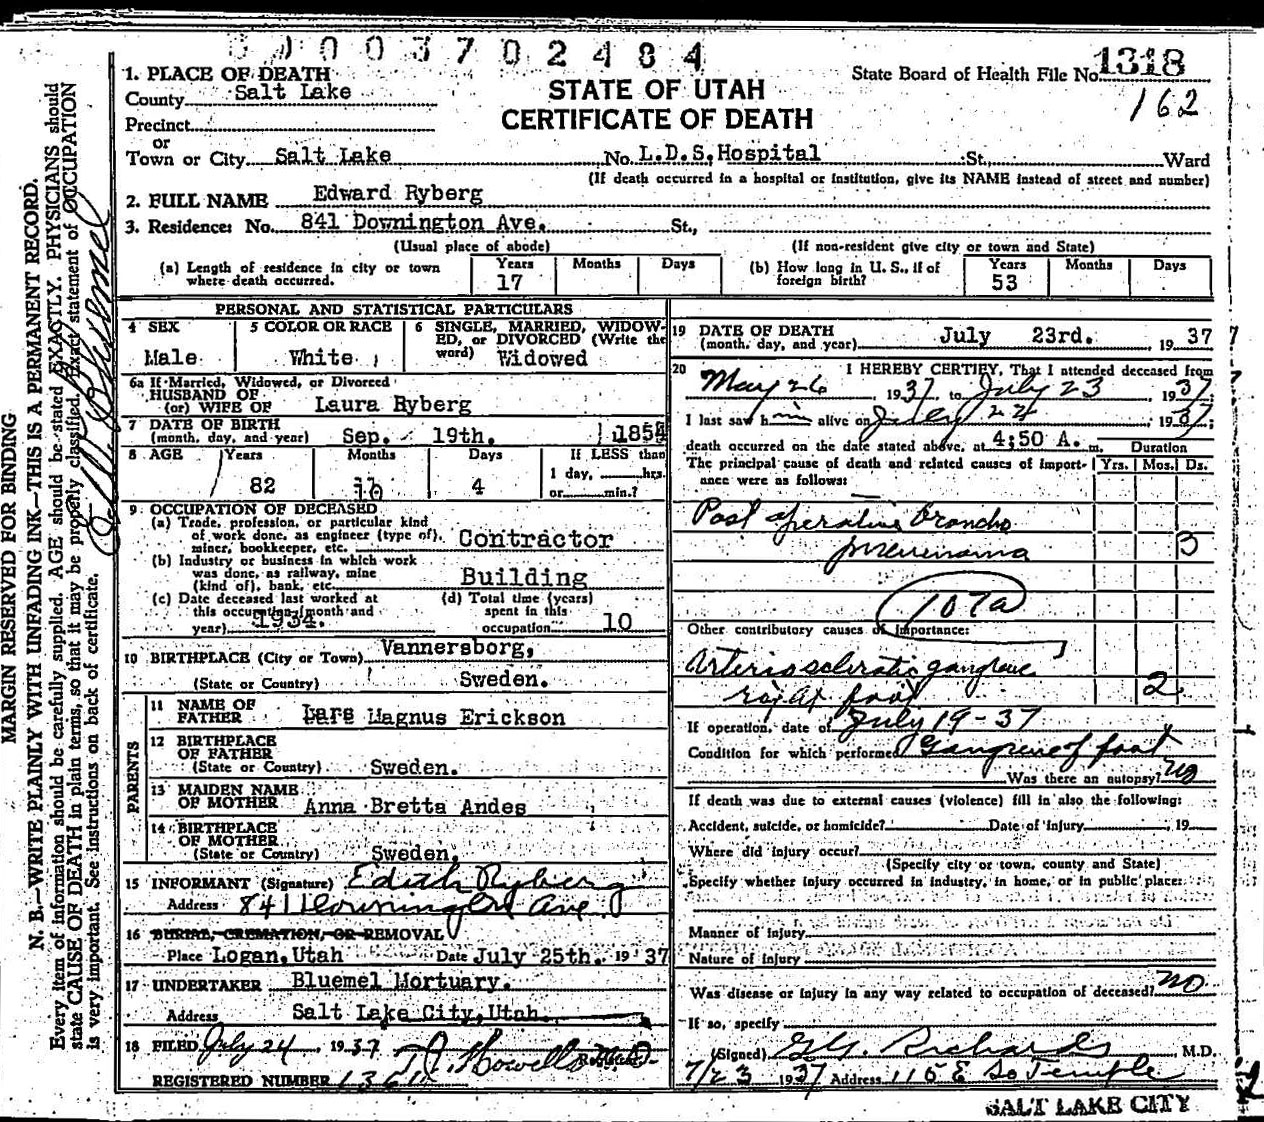 00003702484
1. PLACE OF DEATH
County Salt Lake
Precinct
or
Town or City Salt Lake No. L.D.S. Hospital St., Ward
(If death occurred in a hospital or institution, give its NAME instead of street and number)
STATE OF UTAH
CERTIFICATE OF DEATH
State Board of Health File No. 1318
162
2. FULL NAME Edward Ryberg
3. Residence: No. 841 Downington Ave. St.,
(Usual place of abode) (If non-resident give city or town and State)
(a) Length of residence in city or town where death occurred. Years 17 Months Days
(b) How long in U. S., if of foreign birth? Years 53 Months Days
PERSONAL AND STATISTICAL PARTICULARS
4 SEX Male
5 COLOR OR RACE White
6 SINGLE, MARRIED, WIDOWED, or DIVORCED (Write the word) Widowed
6a If Married, Widowed, or Divorced
HUSBAND OF
(or) WIFE OF Laura Ryberg
7 DATE OF BIRTH
(month, day, and year) Sep. 19th.
8 AGE Years 82 Months 10 Days 4 If LESS than
1 day, hrs.
or min.?
9 OCCUPATION OF DECEASED
(a) Trade, profession, or particular kind
of work done, as engineer (type of),
miner, bookkeeper, etc. Contractor
(b) Industry or business in which work
was done, as railway, mine
(kind of), bank, etc. Building
(c) Date deceased last worked at
this occupation (month and
year) 1934.
(d) Total time (years)
spent in this
occupation 10
10 BIRTHPLACE (City or Town) Vannersborg,
(State or Country) Sweden.
PARENTS
11 NAME OF
FATHER Lars Magnus Erickson
12 BIRTHPLACE
OF FATHER
(State or Country) Sweden.
13 MAIDEN NAME
OF MOTHER Anna Bretta Andes
14 BIRTHPLACE
OF MOTHER
(State or Country) Sweden.
15 INFORMANT (Signature) Edith Ryberg
Address 841 Downington Ave
16 BURIAL, CREMATION, OR REMOVAL
Place Logan, Utah Date July 25th. 1937
17 UNDERTAKER Bluemel Mortuary.
Address Salt Lake City, Utah.
18 FILED July 24, 1937 T.J. Howells M.D.
Registrar
REGISTERED NUMBER
19 DATE OF DEATH
(month, day, and year) July 23rd. , 1937
20 I HEREBY CERTIFY, That I attended deceased from
May 26, 1937, to July 23, 1937,
I last saw him alive on July 22, 1937;
death occurred on the date stated above, at 4:50 A. m.
The principal cause of death and related causes of importance were as follows:
Duration
Yrs. Mos. Ds.
Post operative broncho
pneumonia 3
107a
Other contributory causes of importance:
Arteriosclerotic gangrene
right foot 2
If operation, date of July 19-37
Condition for which performed Gangrene of foot
Was there an autopsy? no
If death was due to external causes (violence) fill in also the following:
Accident, suicide, or homicide? Date of injury , 19
Where did injury occur?
(Specify city or town, county and State)
Specify whether injury occurred in industry, in home, or in public place:
Manner of injury
Nature of injury
Was disease or injury in any way related to occupation of deceased? no
If so, specify
(Signed) G.G. Richards, M.D.
7/23 1937 Address 115 E So Temple
SALT LAKE CITY
MARGIN RESERVED FOR BINDING
N. B.—WRITE PLAINLY WITH UNFADING INK—THIS IS A PERMANENT RECORD.
Every item of information should be carefully supplied. AGE should be stated EXACTLY. PHYSICIANS should
state CAUSE OF DEATH in plain terms, so that it may be properly classified. Exact statement of OCCUPATION
is very important. See instructions on back of certificate.